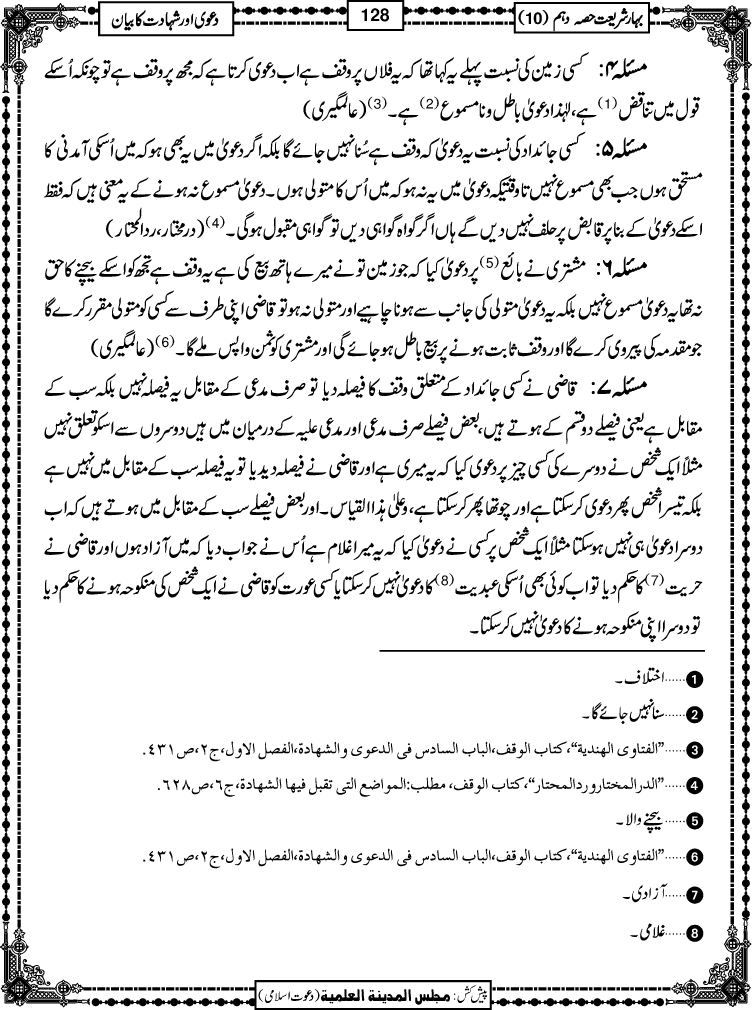 بہارِ شریعت حصہ دہم (10)
128
دعویٰ اور شہادت کا بیان
مسئلہ ۴: کسی زمین کی نسبت پہلے یہ کہا تھا کہ یہ فلاں پر وقف ہے اب دعویٰ کرتا ہے کہ مجھ پر وقف ہے تو چونکہ اُسکے
قول میں تناقض (1) ہے، لہٰذا دعویٰ باطل و نا مسموع (2) ہے۔ (3) (عالمگیری)
مسئلہ ۵: کسی جائداد کی نسبت یہ دعویٰ کہ وقف ہے سُنا نہیں جائے گا بلکہ اگر دعویٰ میں یہ بھی ہو کہ میں اُسکی آمدنی کا
مستحق ہوں جب بھی مسموع نہیں تا وقتیکہ دعویٰ میں یہ نہ ہو کہ میں اُس کا متولی ہوں۔ دعویٰ مسموع نہ ہونے کے یہ معنی ہیں کہ فقط
اسکے دعویٰ کے بنا پر قابض پر حلف نہیں دیں گے ہاں اگر گواہ گواہی دیں تو گواہی مقبول ہوگی۔ (4) (درمختار، ردالمحتار)
مسئلہ ۶: مشتری نے بائع (5) پر دعویٰ کیا کہ جو زمین تو نے میرے ہاتھ بیع کی ہے یہ وقف ہے تجھ کو اسکے بیچنے کا حق
نہ تھا یہ دعویٰ مسموع نہیں بلکہ یہ دعویٰ متولی کی جانب سے ہونا چاہیے اور متولی نہ ہو تو قاضی اپنی طرف سے کسی کو متولی مقرر کرے گا
جو مقدمہ کی پیروی کرے گا اور وقف ثابت ہونے پر بیع باطل ہو جائے گی اور مشتری کو ثمن واپس ملے گا۔ (6) (عالمگیری)
مسئلہ ۷: قاضی نے کسی جائداد کے متعلق وقف کا فیصلہ دیا تو صرف مدعی کے مقابل یہ فیصلہ نہیں بلکہ سب کے
مقابل ہے یعنی فیصلے دو قسم کے ہوتے ہیں، بعض فیصلے صرف مدعی اور مدعی علیہ کے درمیان میں ہیں دوسروں سے اسکو تعلق نہیں
مثلاً ایک شخص نے دوسرے کی کسی چیز پر دعویٰ کیا کہ یہ میری ہے اور قاضی نے فیصلہ دیدیا تو یہ فیصلہ سب کے مقابل میں نہیں ہے
بلکہ تیسرا شخص پھر دعویٰ کرسکتا ہے اور چوتھا پھر کرسکتا ہے، وعلیٰ ہذا القیاس۔ اور بعض فیصلے سب کے مقابل میں ہوتے ہیں کہ اب
دوسرا دعویٰ ہی نہیں ہوسکتا مثلاً ایک شخص پر کسی نے دعویٰ کیا کہ یہ میرا غلام ہے اُس نے جواب دیا کہ میں آزاد ہوں اور قاضی نے
حریت (7) کا حکم دیا تو اب کوئی بھی اُسکی عبدیت (8) کا دعویٰ نہیں کرسکتا یا کسی عورت کو قاضی نے ایک شخص کی منکوحہ ہونے کا حکم دیا
تو دوسرا اپنی منکوحہ ہونے کا دعویٰ نہیں کرسکتا۔
1 ......اختلاف۔
2 ......سنا نہیں جائے گا۔
3 ......”الفتاوی الھندیة“، کتاب الوقف، الباب السادس فی الدعوی والشهادة، الفصل الاول، ج۲، ص۴۳۱.
4 ......”الدرالمختار وردالمحتار“، کتاب الوقف، مطلب: المواضع التی تقبل فیها الشهادة، ج۶، ص۶۲۸.
5 ......بیچنے والا۔
6 ......”الفتاوی الھندیة“، کتاب الوقف، الباب السادس فی الدعوی والشهادة، الفصل الاول، ج۲، ص۴۳۱.
7 ......آزادی۔
8 ......غلامی۔
پیش کش: مجلس المدینة العلمیة (دعوت اسلامی)